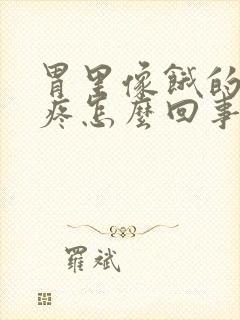 胃里像餓的
疼怎麼回事
羅斌